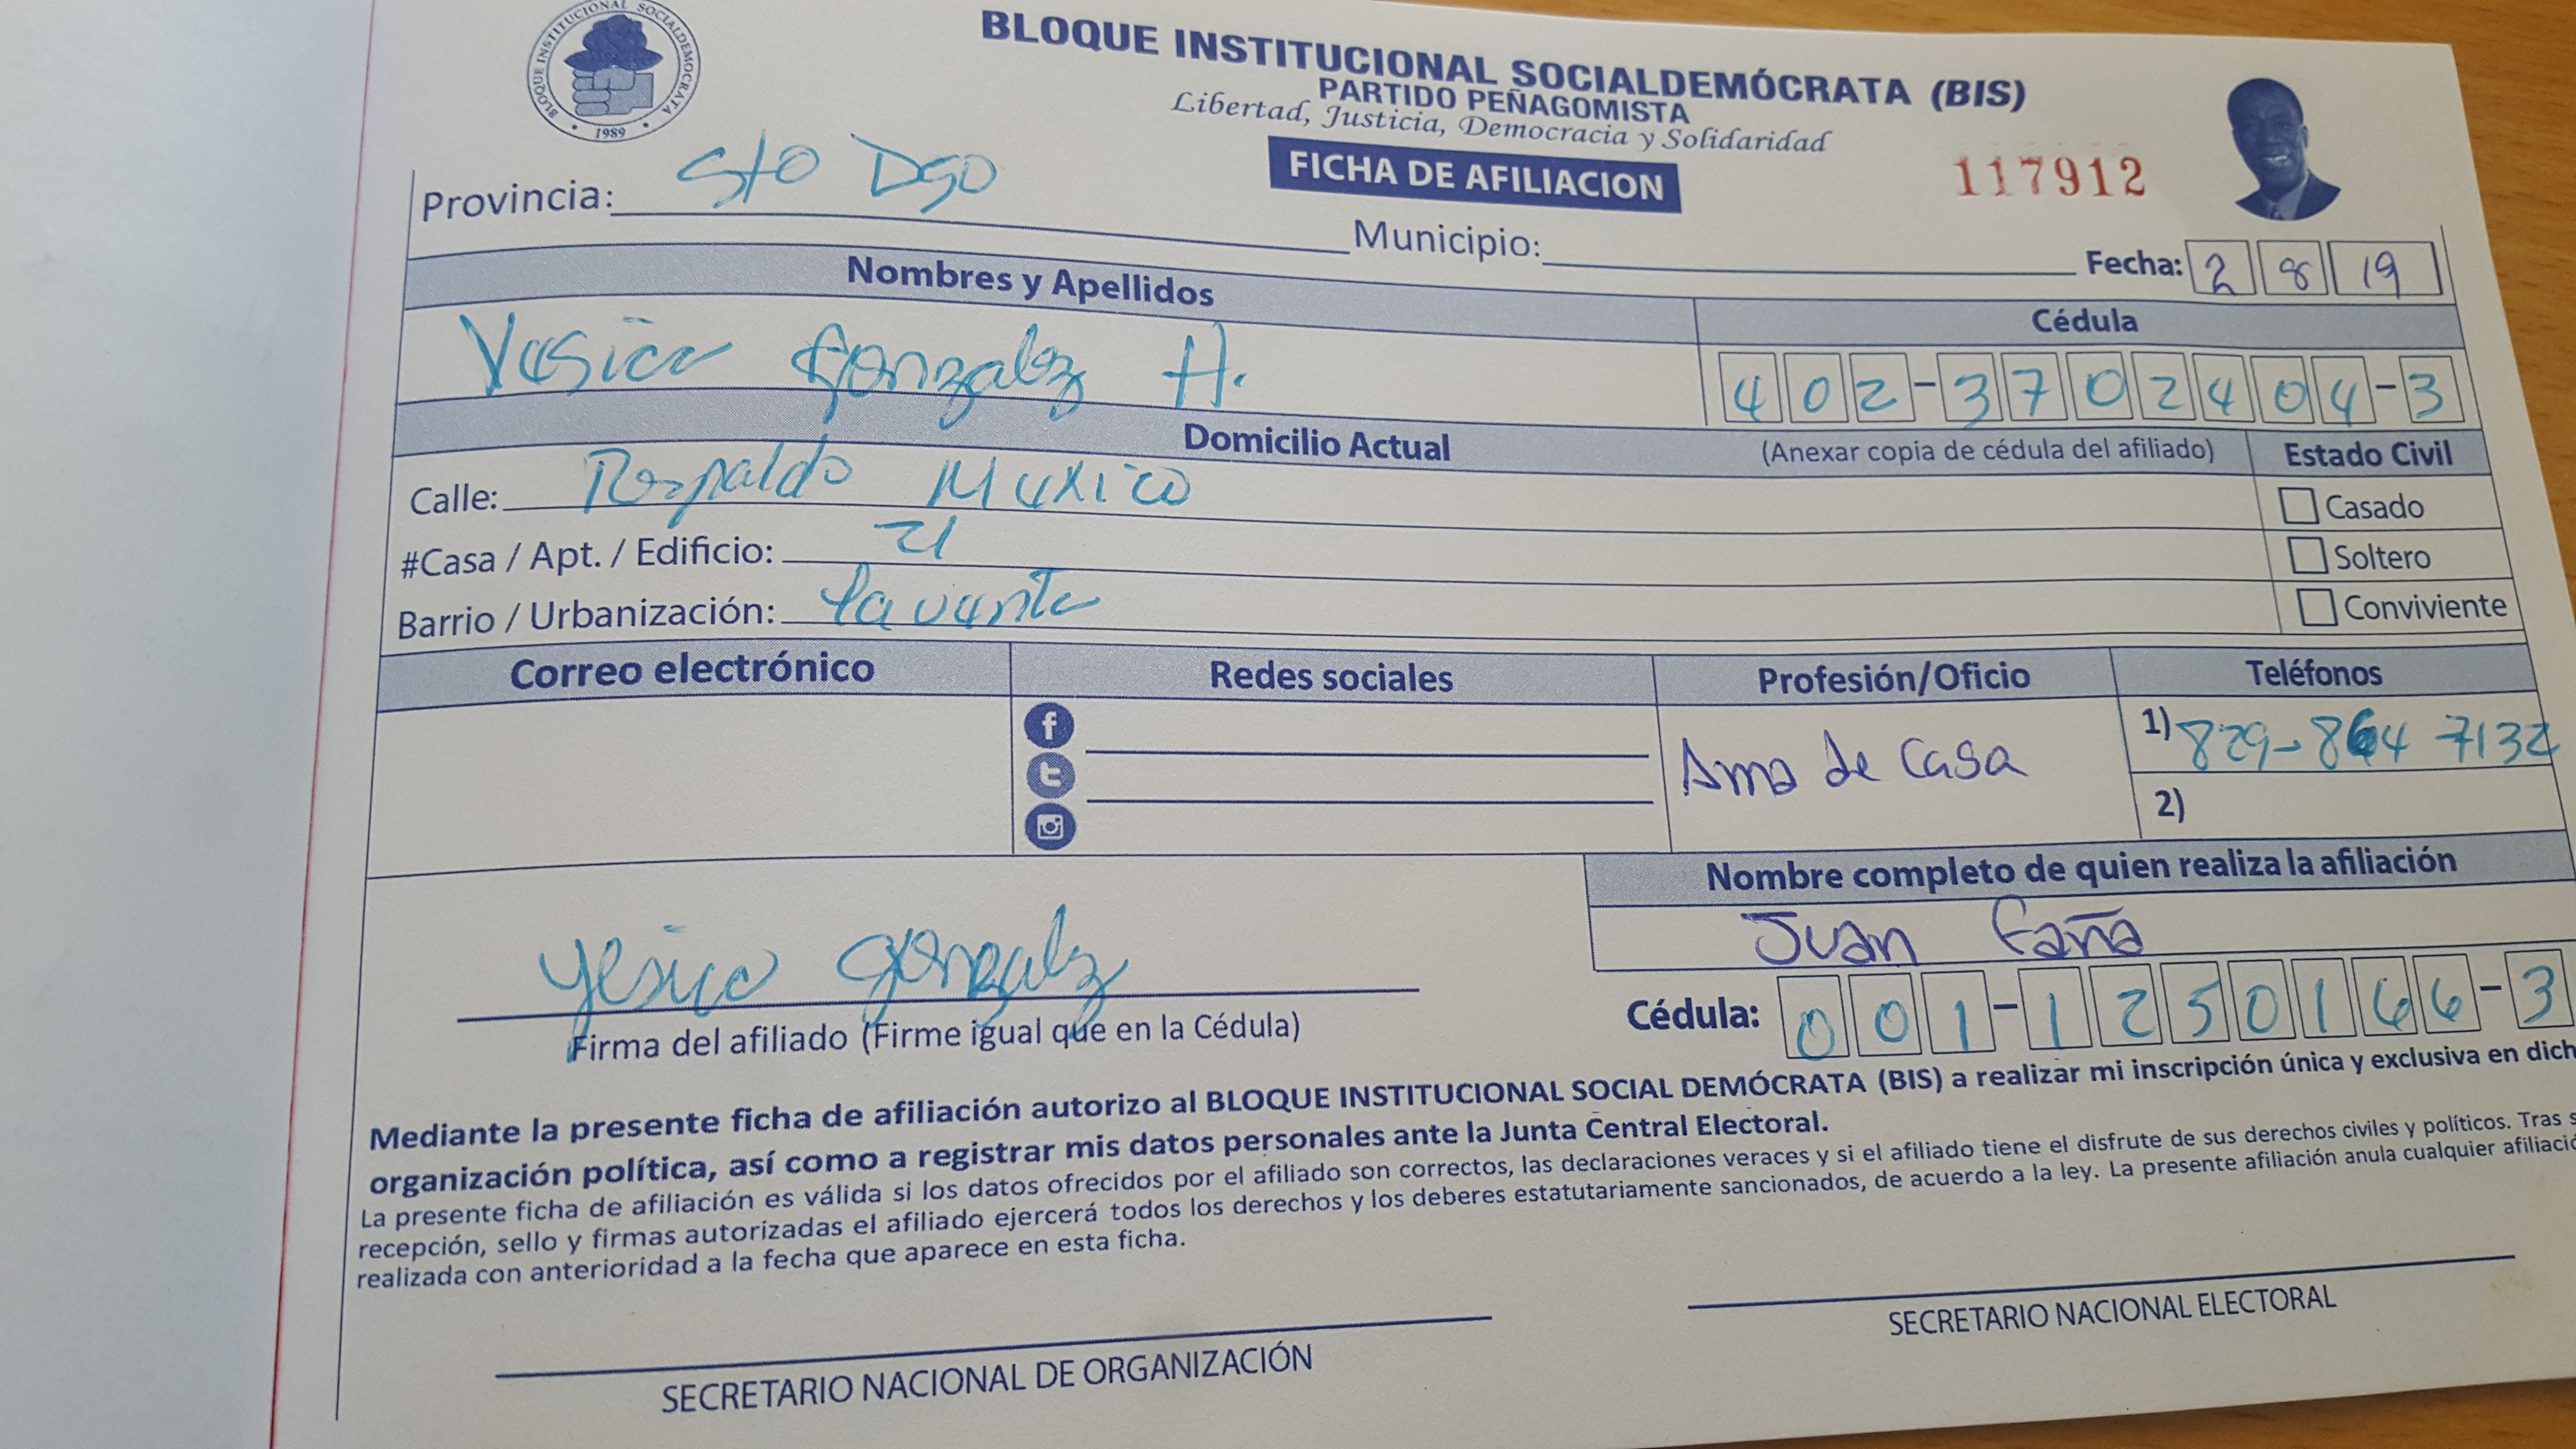 BLOQUE INSTITUCIONAL SOCIALDEMOCRATA
1989
BLOQUE INSTITUCIONAL SOCIALDEMÓCRATA (BIS)
PARTIDO PEÑAGOMISTA
Libertad, Justicia, Democracia y Solidaridad
FICHA DE AFILIACION
117912
Provincia: Sto Dgo
Municipio:
Fecha: 2 8 19
Nombres y Apellidos
Cédula
Yesica Gonzalez H.
402-3702404-3
Domicilio Actual
(Anexar copia de cédula del afiliado)
Estado Civil
Calle: Respaldo Mexico
Casado
#Casa / Apt. / Edificio: 21
Soltero
Barrio / Urbanización: la vanta
Conviviente
Correo electrónico
Redes sociales
Profesión/Oficio
Teléfonos
Ama de Casa
1) 829-864 7132
2)
Nombre completo de quien realiza la afiliación
Juan Faña
Yesica Gonzalez
Cédula: 001-1250166-3
Firma del afiliado (Firme igual que en la Cédula)
Mediante la presente ficha de afiliación autorizo al BLOQUE INSTITUCIONAL SOCIAL DEMÓCRATA (BIS) a realizar mi inscripción única y exclusiva en dich
organización política, así como a registrar mis datos personales ante la Junta Central Electoral.
La presente ficha de afiliación es válida si los datos ofrecidos por el afiliado son correctos, las declaraciones veraces y si el afiliado tiene el disfrute de sus derechos civiles y políticos. Tras s
recepción, sello y firmas autorizadas el afiliado ejercerá todos los derechos y los deberes estatutariamente sancionados, de acuerdo a la ley. La presente afiliación anula cualquier afiliació
realizada con anterioridad a la fecha que aparece en esta ficha.
SECRETARIO NACIONAL DE ORGANIZACIÓN
SECRETARIO NACIONAL ELECTORAL